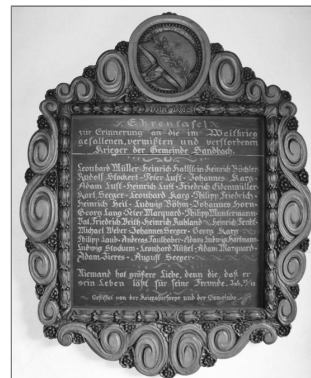 Ehrentafel
zur Erinnerung an die im Weltkrieg
gefallenen, vermißten und verstorbenen
Krieger der Gemeinde Sandbach.
Leonhard Müller · Heinrich Hallstein · Heinrich Büchler
Rudolf Stockert · Peter Luft · Johannes Karg
Adam Luft · Heinrich Luft · Friedrich Eidenmüller
Karl Seeger · Leonhard Karg · Philipp Friedrich
Heinrich Heil · Ludwig Böhm · Johannes Horn
Georg Lang · Peter Marquard · Philipp
Friedrich Veith · Heinrich · Heinrich
Michael Weber · Johannes Seeger · Georg Karg
Philipp Laub · Andreas Faulhaber · Adam Ludwig Hartmann
Ludwig · Leonhard Nickel · Adam Marquard
Adam Bieres · August Seeger
Niemand hat größere Liebe, denn die, daß er
sein Leben läßt für seine Freunde. Joh. 15/13
Gestiftet von der und der Gemeinde